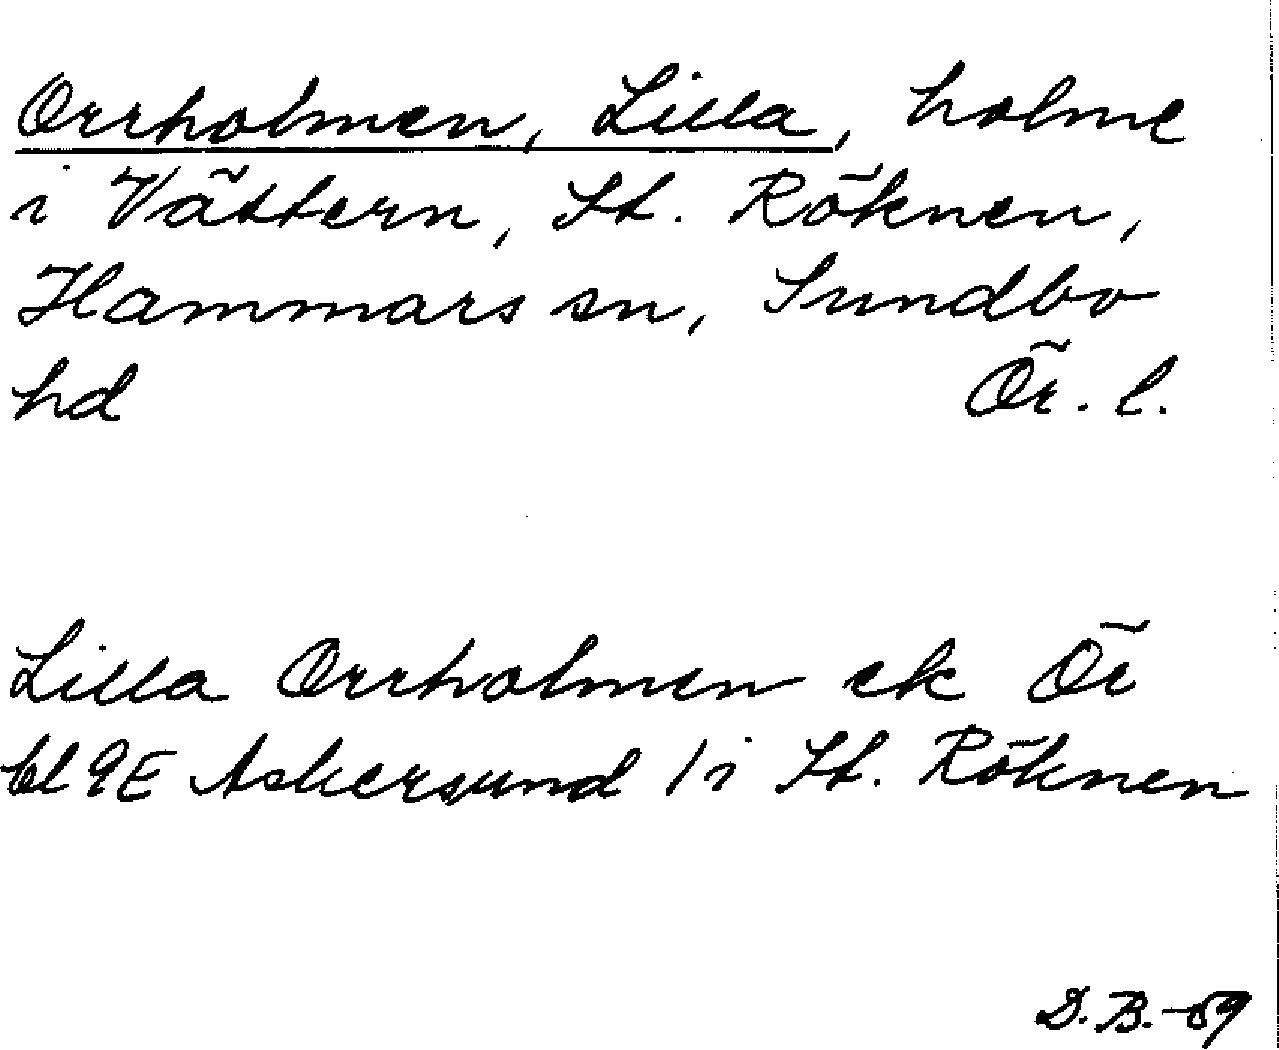 Orrholmen, Lilla, holme
i Vättern, St. Röknen,
Hammars sn, Sundbo
hd Ör. l.
Lilla Orrholmen ek Ör
bl 9E Askersund / i St. Röknen
D.B.-59